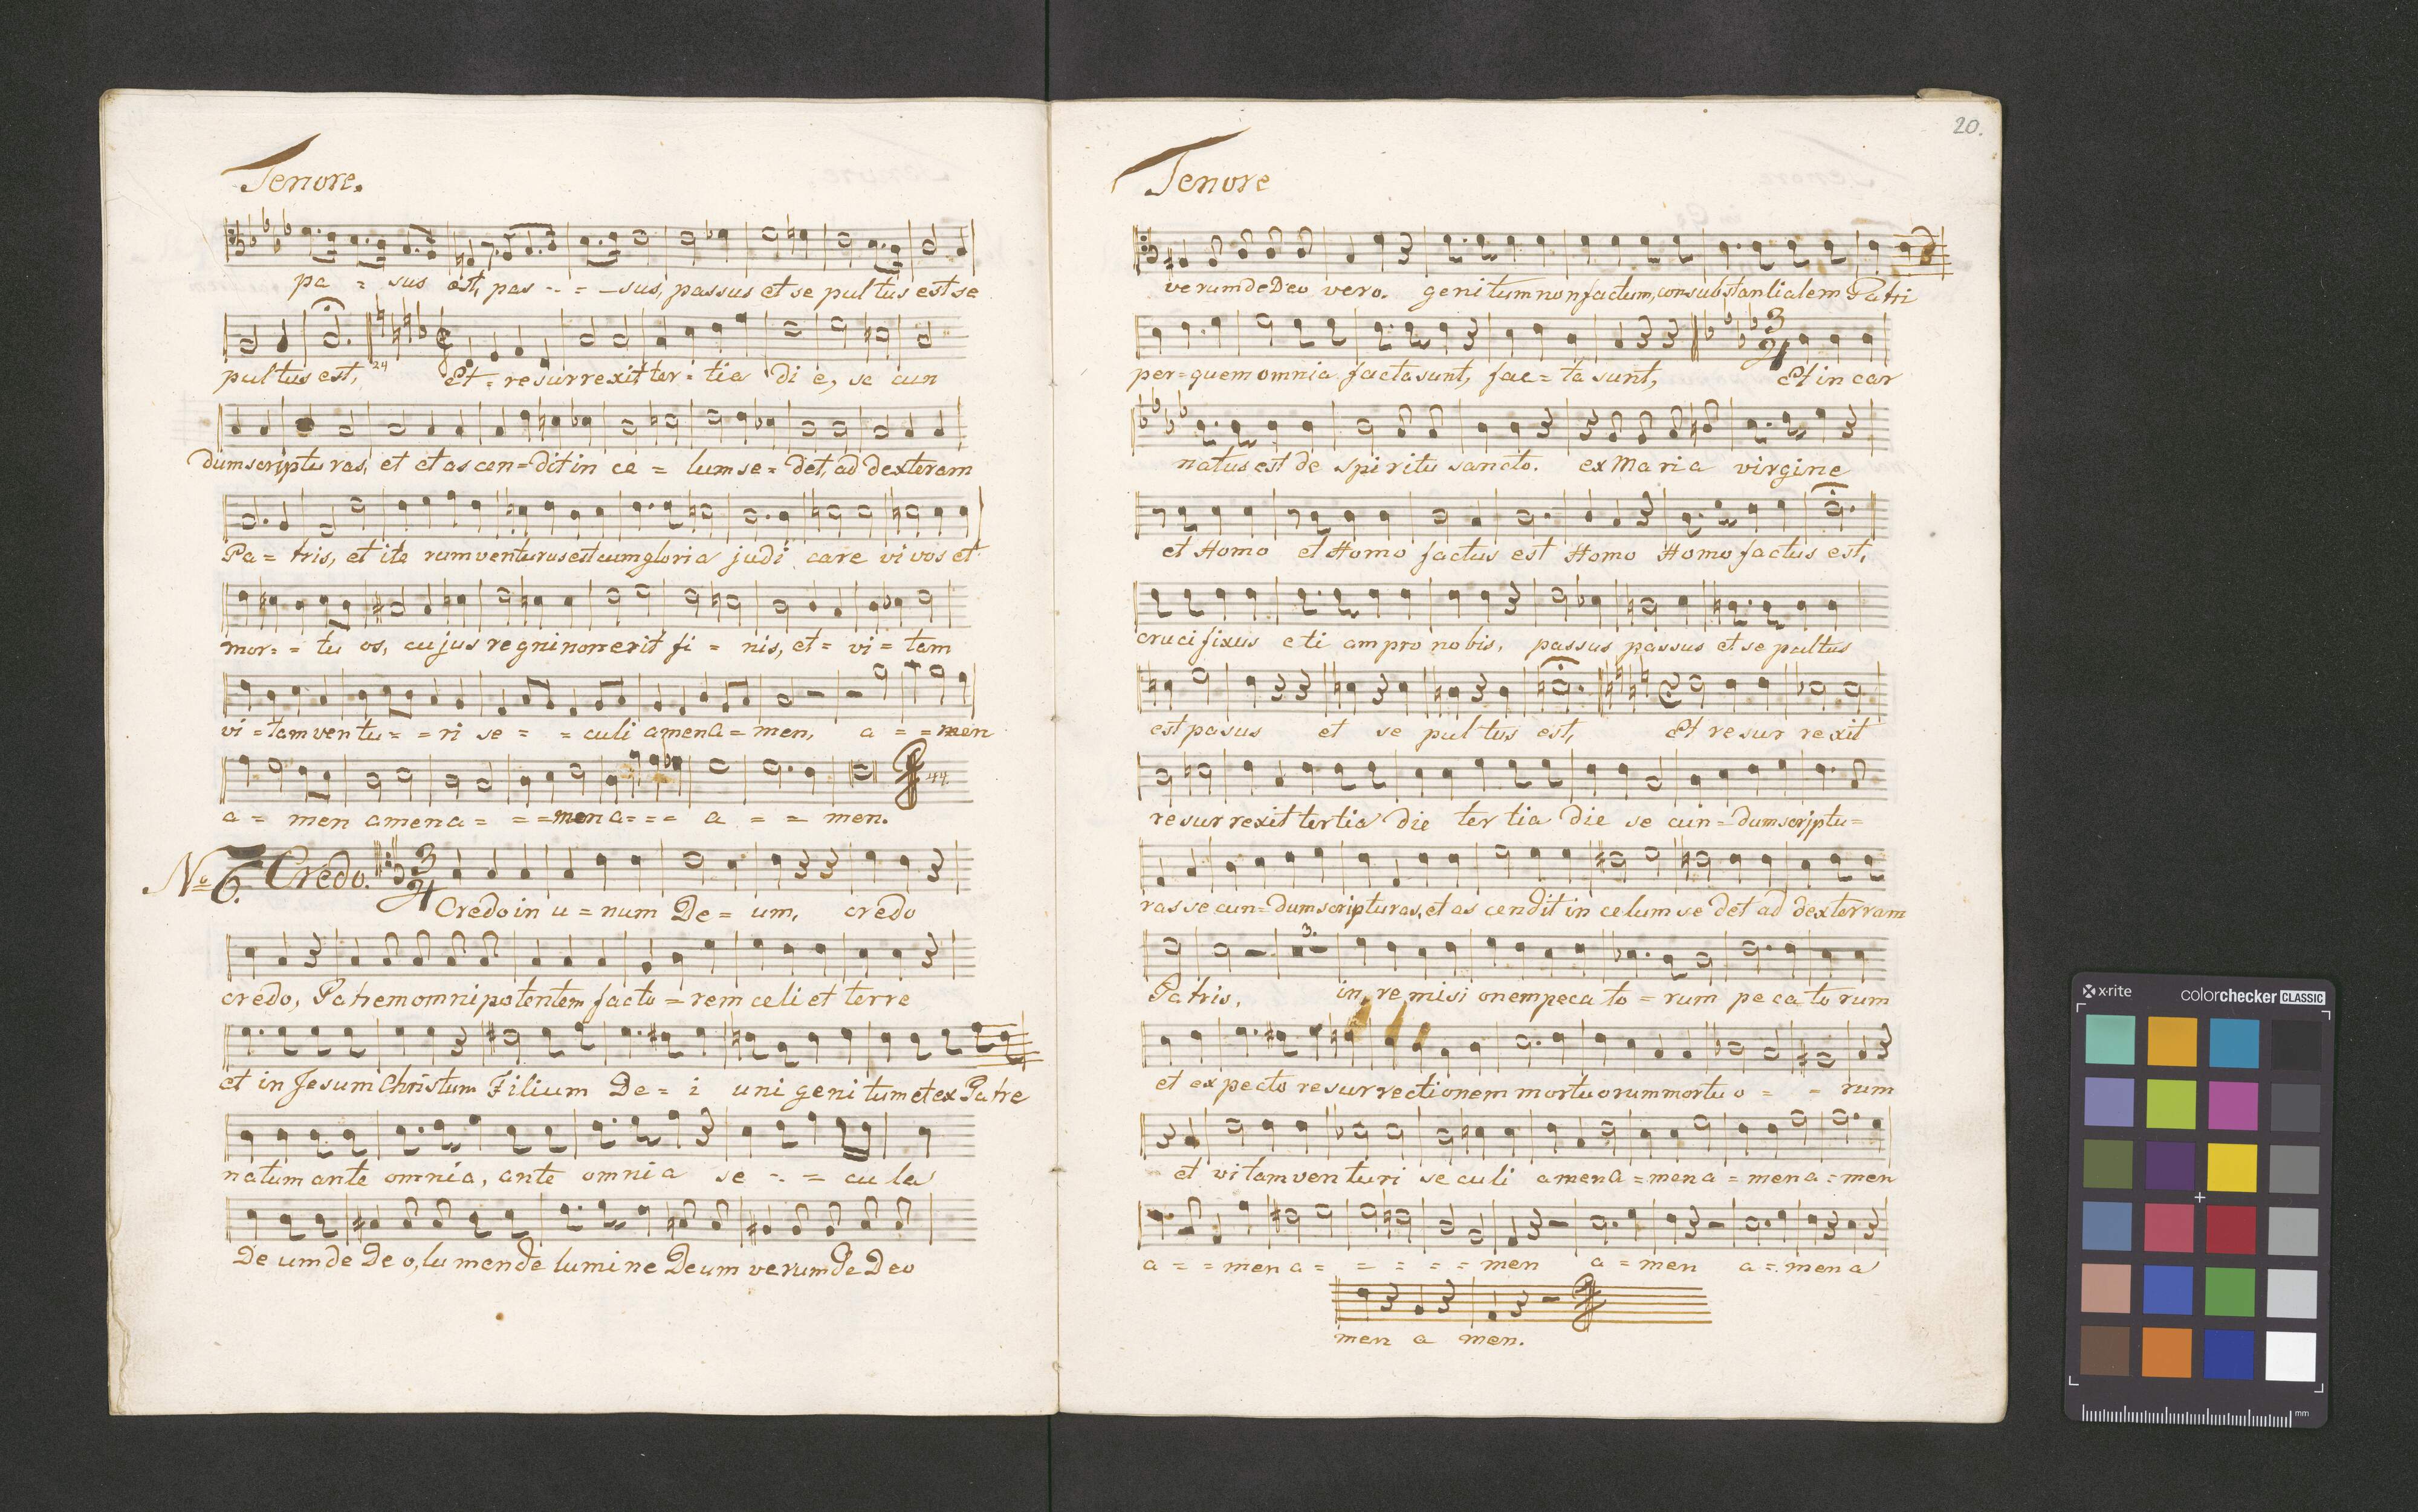 Tenore.
pa = sus est, pas - - = - sus, passus et se pultus est se
pultus est, 24 Et = resurrexit ter = tia di e, se cun
dum scriptu ras, et et as cen = dit in ce = lum se = det, ad dexteram
Pa = tris, et ite rum venturus est cum gloria judi care vi vos et
mor = = tu os, cujus regni non erit fi = nis, et = vi = tam
vi = tam ven tu = = ri se = = culi amen a = men, a = = men
44.
a = men amen a = = = men a = = = a = = men.
No 6. Credo. 3/4
Credo in u = num De = um, credo
credo, Patrem omni potentem facto = rem celi et terre
et in Jesum Christum Filium De = i uni geni tum et ex Patre
natum ante omnia, ante omnia se - = cu la
De um de De o, lu men de lumi ne Deum verum de Deo
20.
Tenore
verum de Deo vero. geni tum non factum, con substantialem Patri
3/4
per = quem omnia facta sunt, fac = ta sunt, Et in car
natus est de spiritu sancto. ex Maria virgine
et Homo et Homo factus est Homo Homo factus est,
cruci fixus eti am pro nobis, passus passus et se pultus
est pasus et se pul tus est, Et re sur re xit
re sur rexit tertia die ter tia die se cun = dum scriptu =
ras se cun = dum scripturas, et as cendit in celum se det ad dexterram
3.
Patris, in re misi onem peca to = rum pe ca to rum
et expecto resur rectionem mortuorum mortu o = - rum
et vi tam ven turi se culi amen a = men a = men a = men
a = = men a = = = = = men a = men a = men a
men a men.
x·rite colorchecker CLASSIC
mm